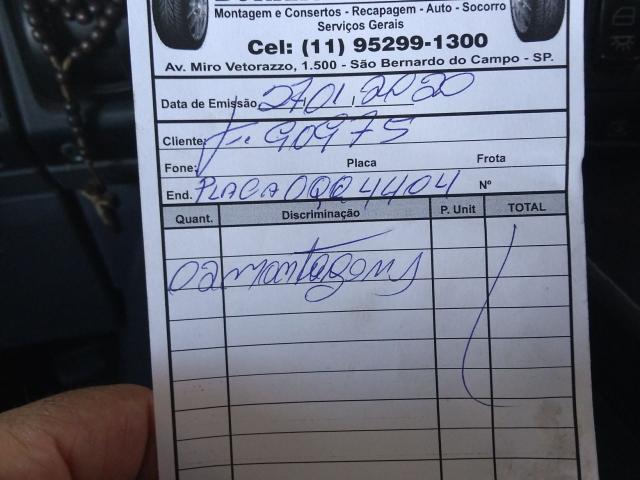 Montagem e Consertos - Recapagem - Auto - Socorro
Serviços Gerais
Cel: (11) 95299-1300
Av. Miro Vetorazzo, 1.500 - São Bernardo do Campo - SP.
Data de Emissão 27,01,2020
Cliente: F. 90975
Fone: Placa Frota
End. PLACA OQQ 4404 Nº
Quant. Discriminação P. Unit TOTAL
02 montagens